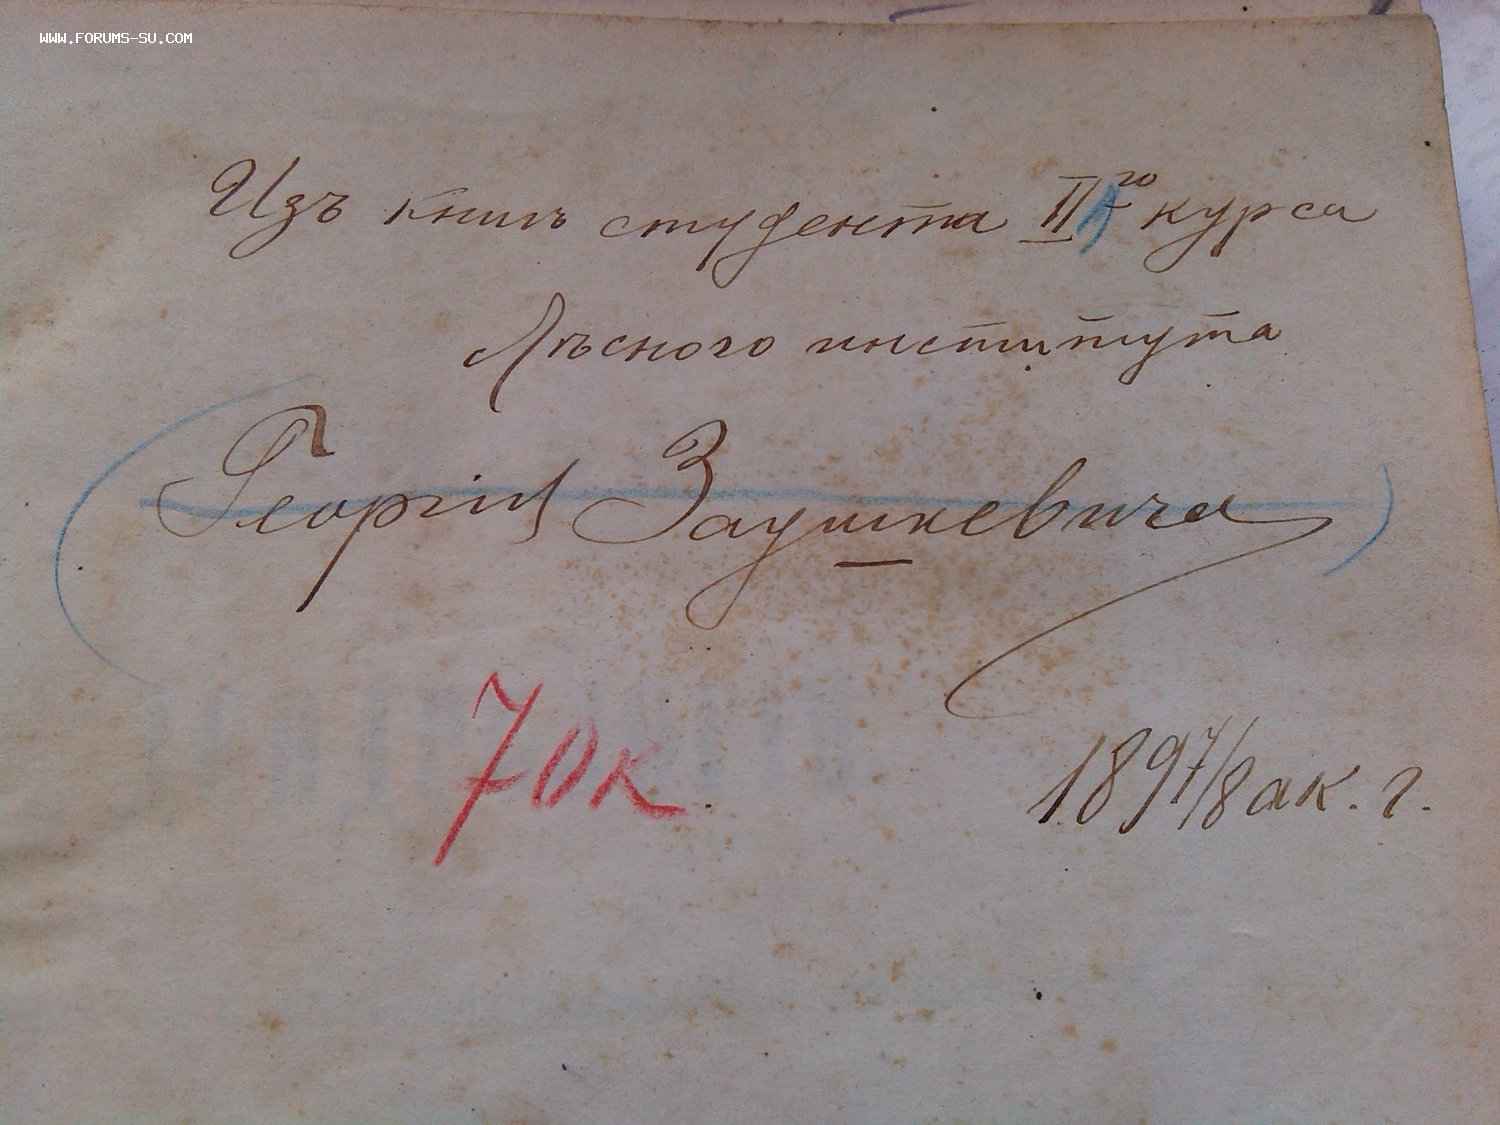 WWW.FORUMS-SU.COM
Изъ книгъ студента II го курса
Лѣсного института
Георгія Заушкевича
70к.
1897/8 ак. г.